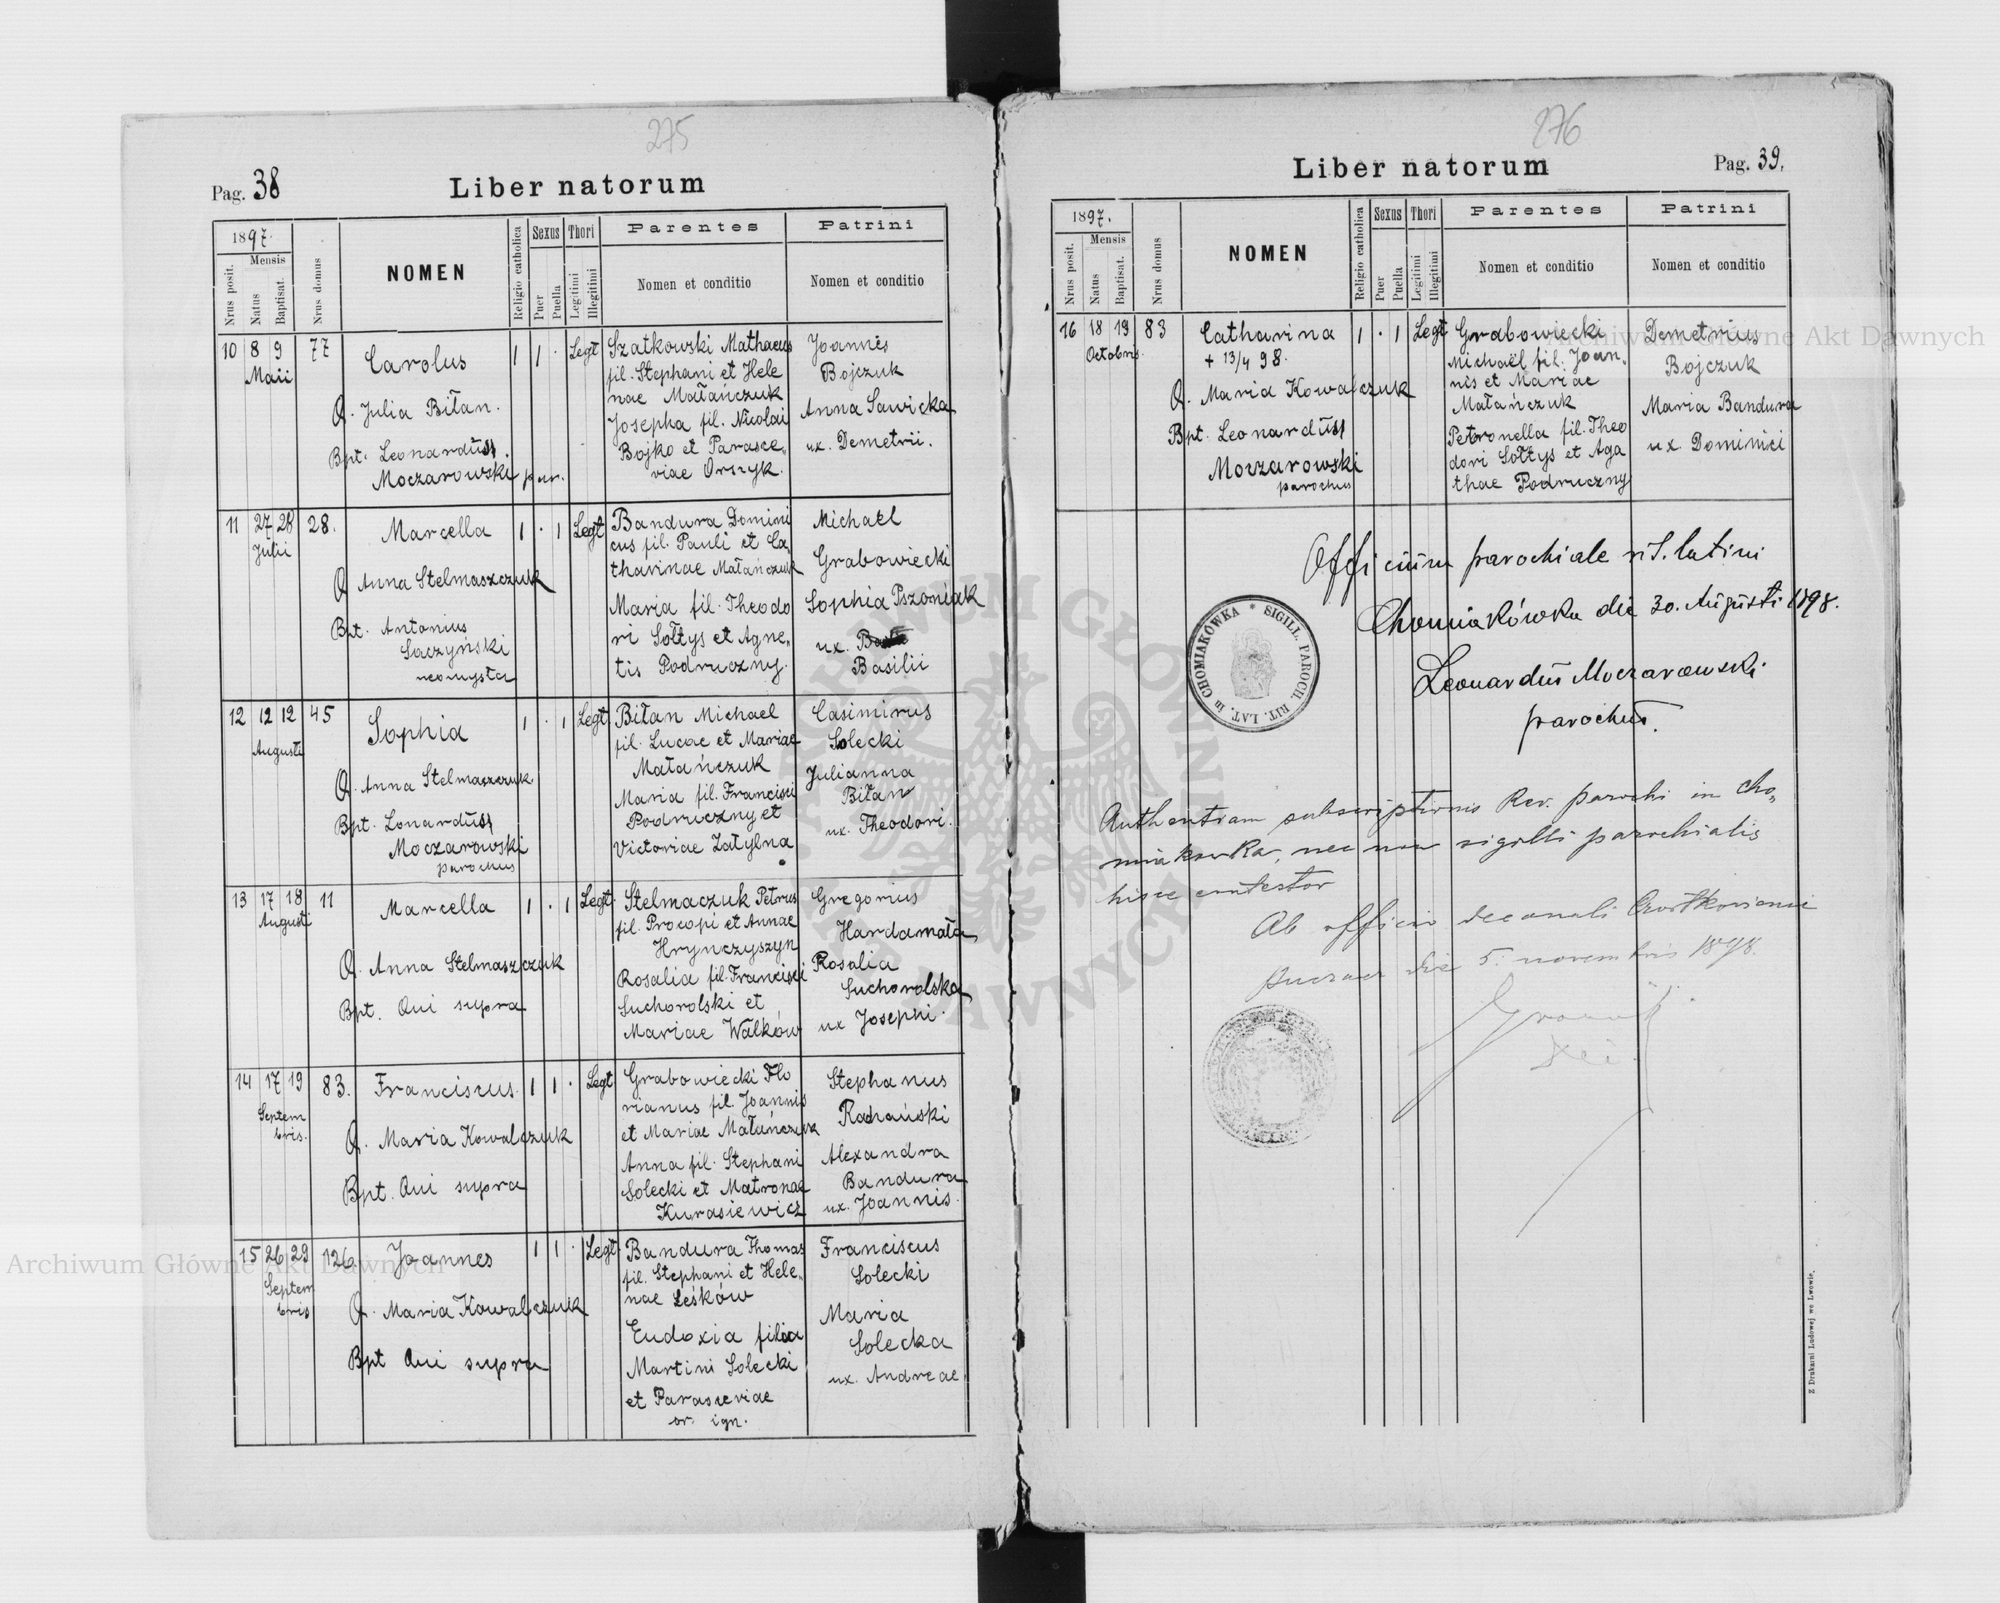 275
Pag. 38
Liber natorum
1897.
Mensis
Nrus posit.
Natus
Baptisat.
Nrus domus
NOMEN
Religio catholica
Sexus
Puer
Puella
Thori
Legitimi
Illegitimi
Parentes
Nomen et conditio
Patrini
Nomen et conditio
10 8 9 77
Maii
Carolus
O. Julia Biłan.
Bpt. Leonardus
Moczarowski par.
1 1 . Legt
Szatkowski Mathaeus
fil. Stephani et Hele
nae Małańczuk
Josepha fil. Nicolai
Bojko et Parasce„
viae Orszyk.
Joannes
Bojczuk
Anna Sawicka
ux. Demetrii.
11 27 28 28.
Julii
Marcella
O Anna Stelmaszczuk
Bpt. Antonius
Saczyński
neomysta
1 . 1 Legt
Bandura Domini
cus fil. Pauli et Ca„
tharinae Małańczuk
Maria fil. Theodo
ri Sołtys et Agne„
tis Podruczny.
Michael
Grabowiecki
Sophia Pszoniak
ux.
Basilii
12 12 12 45
Augusti
Sophia
O. Anna Stelmaszczuk
Bpt. Lonardus
Moczarowski
parochus
1 . 1 Legt
Biłan Michael
fil. Lucae et Mariae
Małańczuk
Maria fil. Francisci
Podruczny et
Victoriae Zatylna
Casimirus
Solecki
Julianna
Biłan
ux. Theodori.
13 17 18 11
Augusti
Marcella
O. Anna Stelmaszczuk
Bpt. Qui supra
1 . 1 Legt.
Stelmaczuk Petrus
fil. Procopi et Annae
Hrynczyszyn
Rosalia fil. Francisci
Suchorolski et
Mariae Walków
Gregorius
Hardamała
Rosalia
Suchorolska
ux Josephi.
14 17 19 83.
Septem
bris.
Franciscus.
O. Maria Kowalczuk
Bpt. Qui supra
1 1 . Legt
Grabowiecki Flo
rianus fil. Joannis
et Mariae Małańczuk
Anna fil. Stephani
Solecki et Matronae
Kurasiewicz
Stephanus
Radański
Alexandra
Bandura
ux. Joannis.
15 26 29 126
Septem
bris
Joannes
O. Maria Kowalczuk
Bpt Qui supra
1 1 . Legt.
Bandura Thomas
fil. Stephani et Hele„
nae Leśków
Eudoxia filia
Martini Solecki
et Parasceviae
or. ign.
Franciscus
Solecki
Maria
Solecka
ux. Andreae
276
Liber natorum
Pag. 39.
1897.
Mensis
Nrus posit.
Natus
Baptisat.
Nrus domus
NOMEN
Religio catholica
Sexus
Puer
Puella
Thori
Legitimi
Illegitimi
Parentes
Nomen et conditio
Patrini
Nomen et conditio
16 18 19 83
Octobris.
Catharina
+ 13/4 98.
O. Maria Kowalczuk
Bpt. Leonardus
Moczarowski
parochus
1 . 1 Legt
Grabowiecki
Michaël fil. Joan„
nis et Mariae
Małańczuk
Petronella fil. Theo
dori Sołtys et Aga
thae Podruczny
Demetrius
Bojczuk
Maria Bandura
ux Dominici
Officium parochiale rit. latini
Chomiakówka die 30. Augusti 1898.
Leonardus Moczarowski
parochus.
SIGILL. PAROCH. RIT. LAT. in CHOMIAKÓWKA *
Authentiam subscriptionis Rev. parochi in Cho„
miakowka, nec non sigilli parochialis
hisce contestor
Ab officio decanali Czortkoviensi
die 5. novembris 1898.
Z Drukarni Ludowej we Lwowie.
Archiwum Główne Akt Dawnych
Archiwum Główne Akt Dawnych
ARCHIWUM GŁÓWNE AKT DAWNYCH